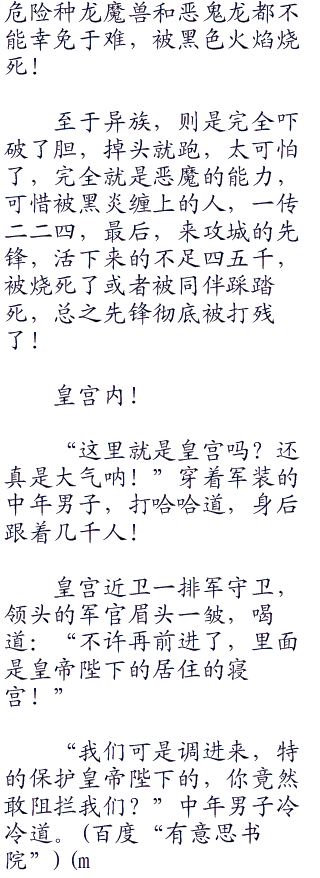 危险种龙魔兽和恶鬼龙都不
能幸免于难，被黑色火焰烧
死！
至于异族，则是完全吓
破了胆，掉头就跑，太可怕
了，完全就是恶魔的能力，
可惜被黑炎缠上的人，一传
二二四，最后，来攻城的先
锋，活下来的不足四五千，
被烧死了或者被同伴踩踏
死，总之先锋彻底被打残
了！
皇宫内！
“这里就是皇宫吗？还
真是大气呐！”穿着军装的
中年男子，打哈哈道，身后
跟着几千人！
皇宫近卫一排军守卫，
领头的军官眉头一皱，喝
道：“不许再前进了，里面
是皇帝陛下的居住的寝
宫！”
“我们可是调进来，特
的保护皇帝陛下的，你竟然
敢阻拦我们？”中年男子冷
冷道。(百度“有意思书
院”)(m